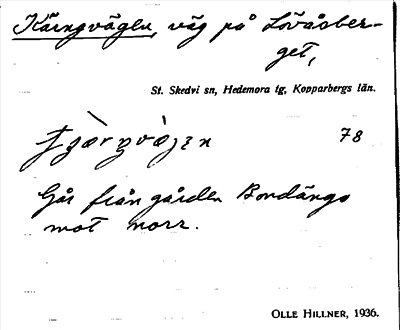 Käringvägen, väg på Lövåsber-
get,
St. Skedvi sn, Hedemora tg, Kopparbergs län.
78
Går från gården Bondängs
mot norr.
OLLE HILLNER, 1936.